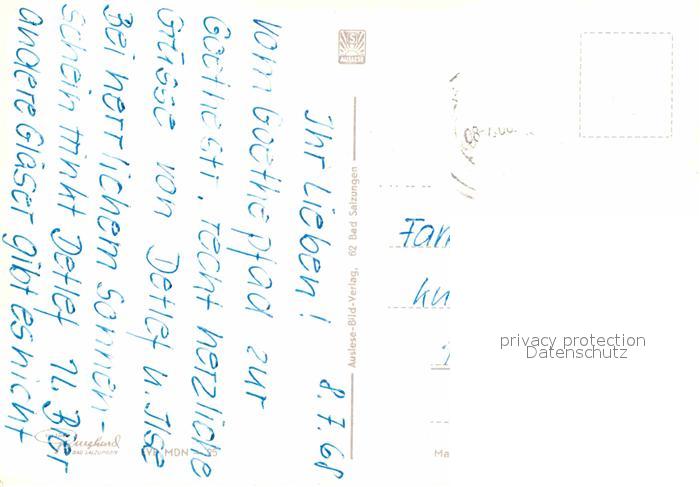 8.7.68
Ihr Lieben!
vom Goethepfad zur
Goethestr. recht herzliche
Grüsse von Detlef u. Ilse
Bei herrlichem Sonnen-
schein trinkt Detlef 11. Bier
andere Gläser gibt es nicht
Auslese-Bild-Verlag, 62 Bad Salzungen
AUSLESE
BAD SALZUNGEN
MDN
Fam
Ku
Ma
privacy protection
Datenschutz